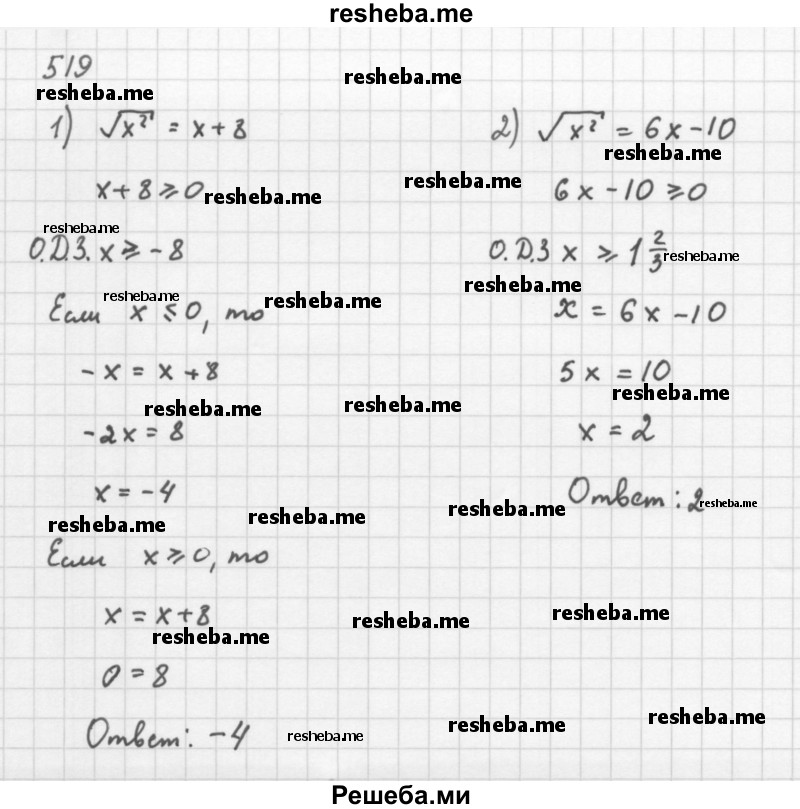 resheba.me
519
resheba.me
resheba.me
1) √x² = x+8
resheba.me
x+8 ⩾ 0
resheba.me
resheba.me
О.Д.З. x ⩾ -8
resheba.me
Если x ⩽ 0, то
resheba.me
-x = x+8
resheba.me
resheba.me
-2x = 8
x = -4
resheba.me
resheba.me
Если x ⩾ 0, то
x = x+8
resheba.me
resheba.me
0 = 8
Ответ: -4
resheba.me
2) √x² = 6x-10
resheba.me
6x-10 ⩾ 0
О.Д.З x ⩾ 1 2/3
resheba.me
resheba.me
x = 6x-10
5x = 10
resheba.me
x = 2
Ответ: 2
resheba.me
resheba.me
resheba.me
resheba.me
resheba.me
Решеба.ми